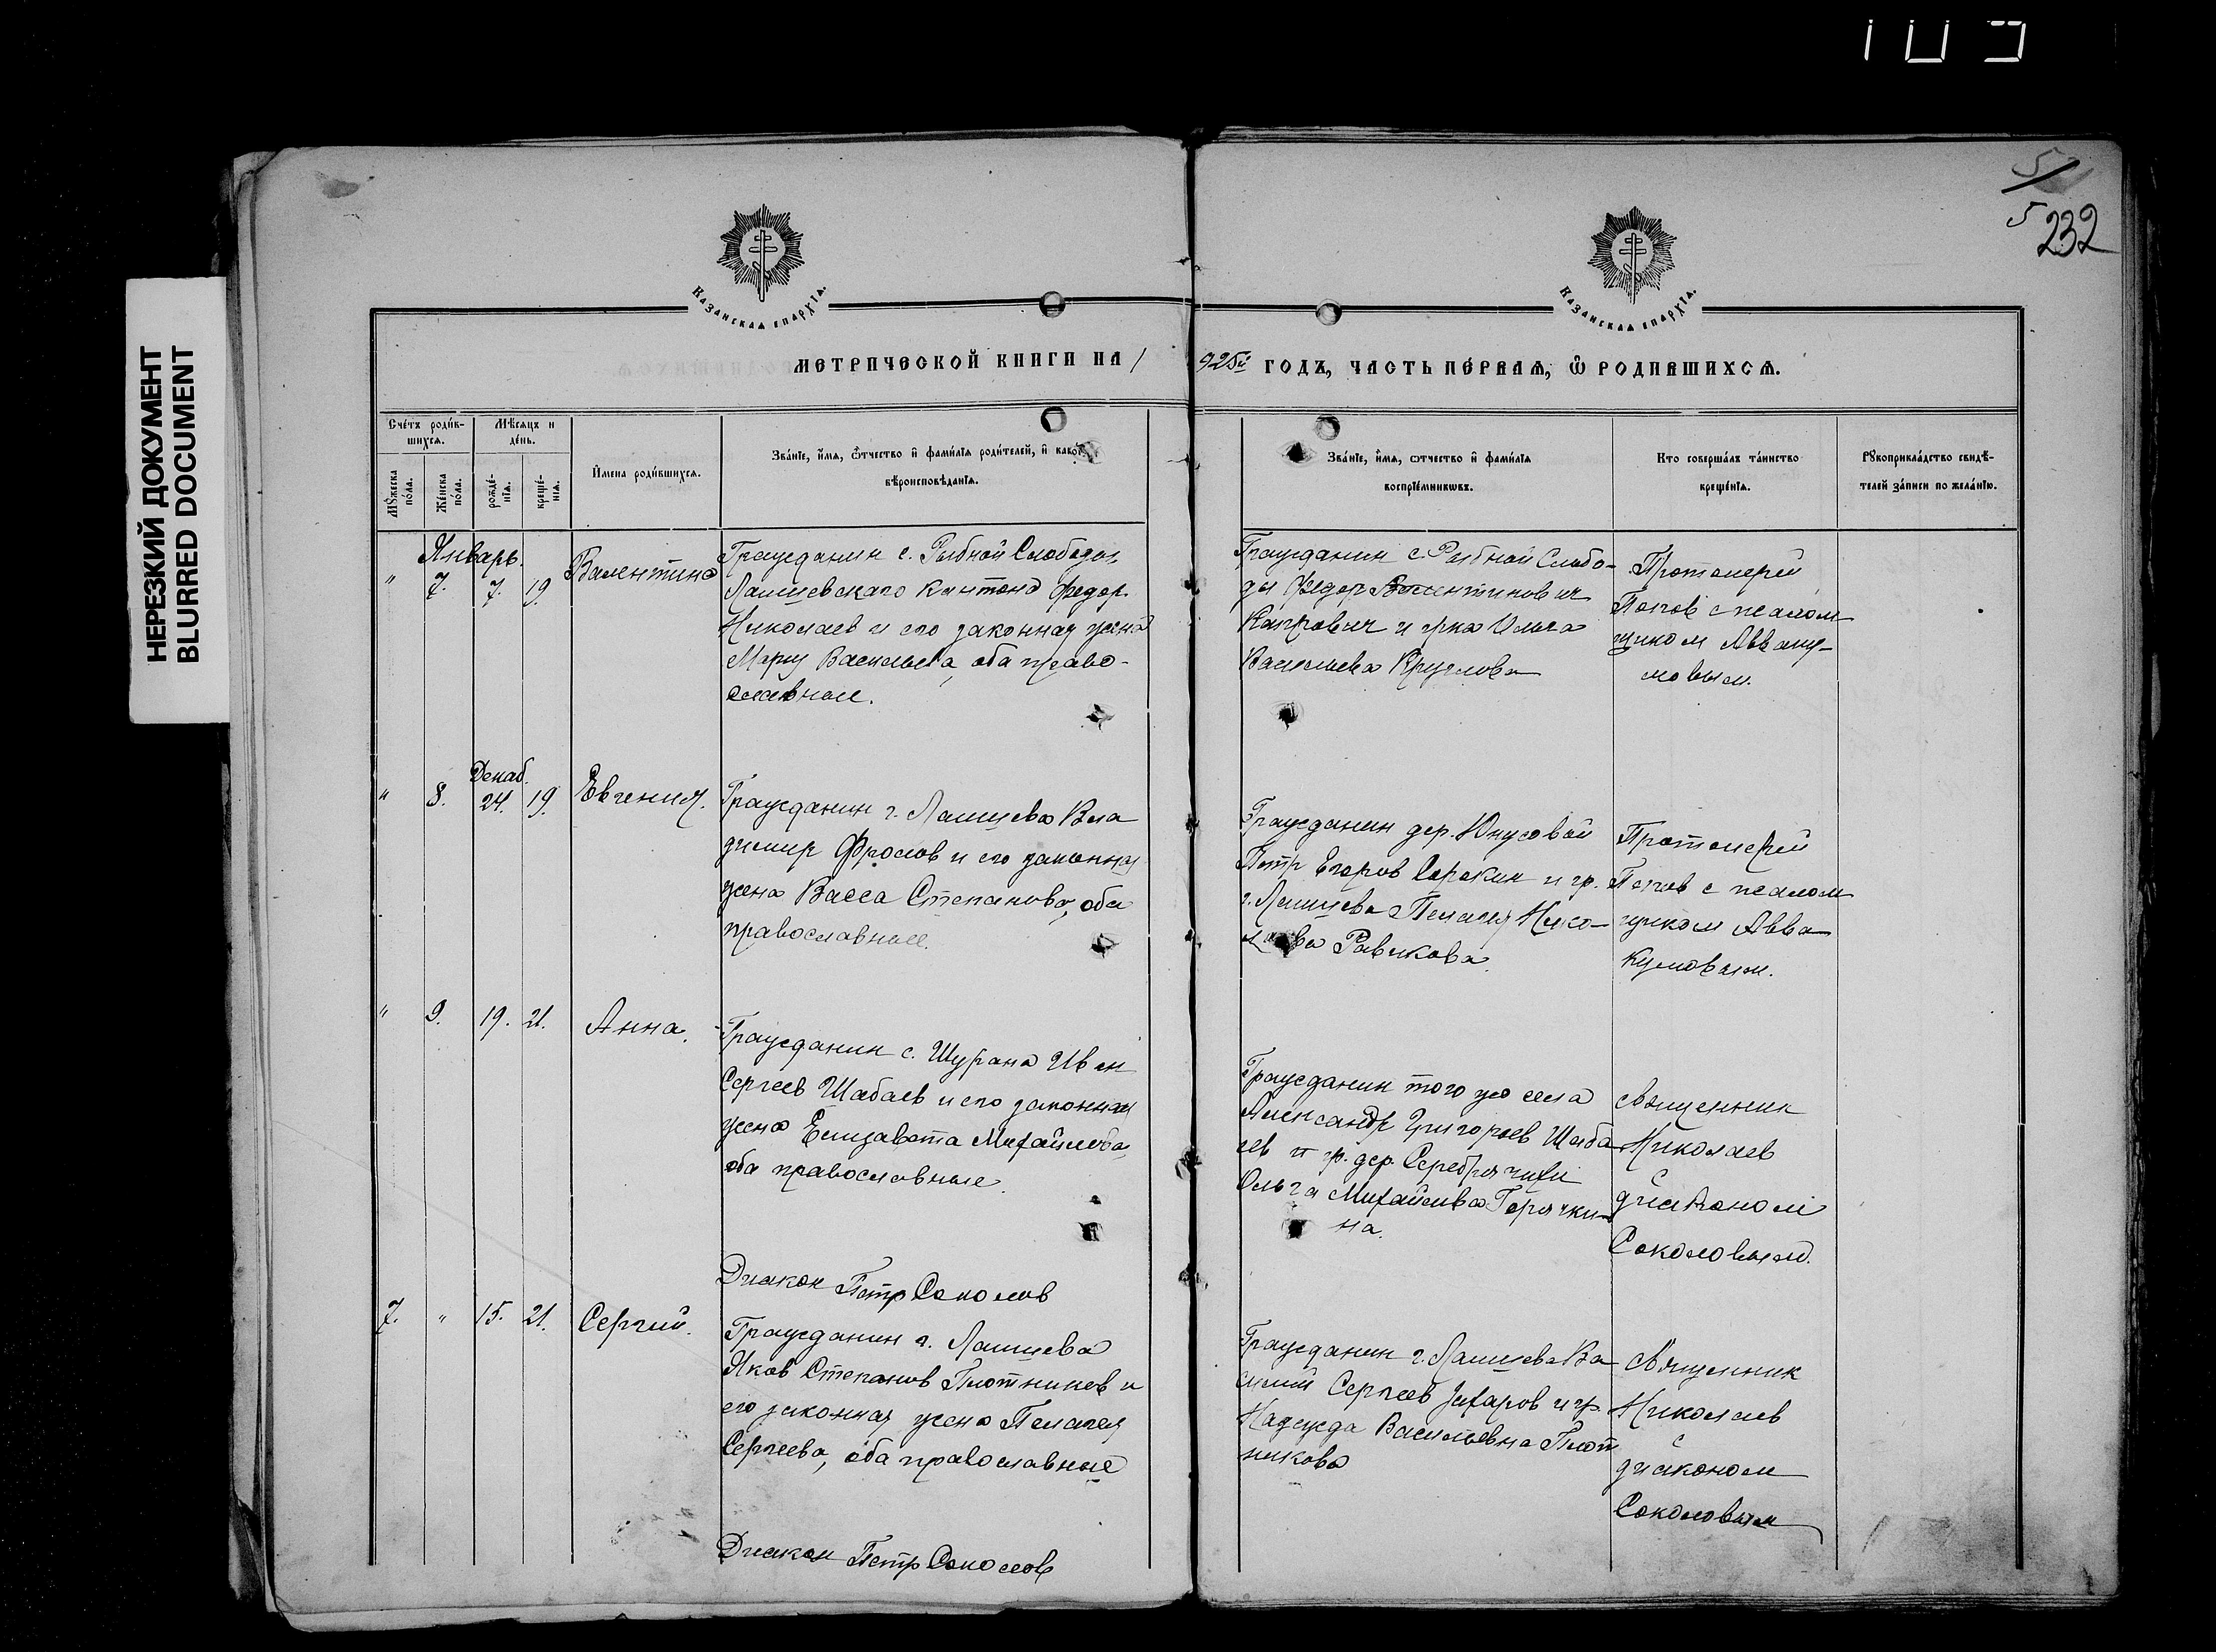 НЕРЕЗКИЙ ДОКУМЕНТ
BLURRED DOCUMENT
5/
5 232
Казанская епархїа.
Казанская епархїа.
МЕТРИЧЕСКОЙ КНИГИ НА 1
925й ГОДЪ, ЧАСТЬ ПЕ́РВАѦ, Ѡ РОДИВШИХСѦ.
Сче́тъ роди́в-
шихсѧ.
Мѣ́сѧцъ и
де́нь.
Мꙋ́жеска
по́ла.
Же́нска
по́ла.
рожде́-
нїѧ.
креще́-
нїѧ.
И́мена роди́вшихсѧ.
Зва́нїе, и́мѧ, ѻ́тчество и фами́лїѧ роди́телей, и како́г
вѣроисповѣ́данїѧ.
Зва́нїе, и́мѧ, ѻ́тчество и фами́лїѧ
воспрїе́мникѡвъ.
Кто соверша́лъ та́инство
креще́нїѧ.
Рꙋкоприкла́дство свидѣ́-
телей за́писи по жела́нїю.
Январь.
" 7. 7. 19.
Валентина
Гражданин с. Рыбной Слободы
Лаишевскаго кантона Федор
Николаев и его законная жена
Мария Васильева, оба право-
славные.
Гражданин с. Рыбной Слобо-
ды Федор Валентинович
Карпович и гр-ка
Васильева Круглова
Протоиерей
Попов с псалом
щиком Аввaку-
мовым.
Декаб.
" 8. 24. 19.
Евгения.
Гражданин г. Лаишева Вла
димир Фролов и его законная
жена Васса Степанова, оба
православные.
Гражданин дер. Юнусовой
Петр Егоров Сорокин и гр.
г. Лаишева Пелагея Нико-
лаева Равикова.
Протоиерей
Попов с псалом
щиком Авва-
кумовым.
" 9. 19. 21.
Анна.
Гражданин с. Шурана Иван
Сергеев Шабаев и его законная
жена Елизавета Михайлова,
оба православные.
Диакон Петр Соколов
Гражданин того же села
Александр Григорьев Шаба
ев и гр. дер. Серебрячихи
Ольга Михайлова Горячки-
на.
священник
Николаев
с
диаконом
Соколовым.
7. " 15. 21.
Сергий.
Гражданин г. Лаишева
Яков Степанов Плотников и
его законная жена Пелагея
Сергеева, оба православные
Диакон Петр Соколов
Гражданин г. Лаишева Ва
силий Сергеев Захаров и гр.
Надежда Васильевна Плот
никова
священник
Николаев
с
диаконом
Соколовым